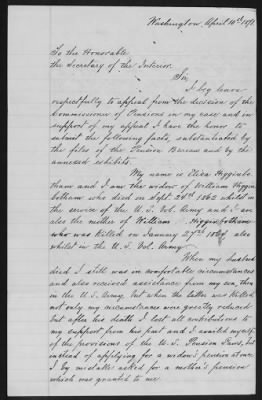 Washington, April 10th
To the Honorable
the Secretary of the Interior.
Sir,
I beg leave
respectfully to appeal from the decision of the
Commissioner of Pensions in my case and in
support of my appeal I have the honor to
submit the following facts, substantiated by
the files of the Pension Bureau and by the
annexed exhibits.
My name is Eliza Higginbo
tham and I am the widow of William Higgin
botham who died on Sept 1862 whilst in
the service of the U. S. Vol. Army and I am
also the mother of William Higginbotham
who was killed on January 27th also
whilst in the U. S. Vol. Army
When my husband
died I still was in comfortable circumstances
and also received assistance from my son, then
in the U. S. Army, but when the latter was killed
not only my circumstances were greatly reduced
but after his death I lost all contributions to
my support from his part and I availed myself
of the provisions of the U. S. Pension Laws, but
instead of applying for a widow's pension at once
I by mistake asked for a mother's pension
which was granted to me